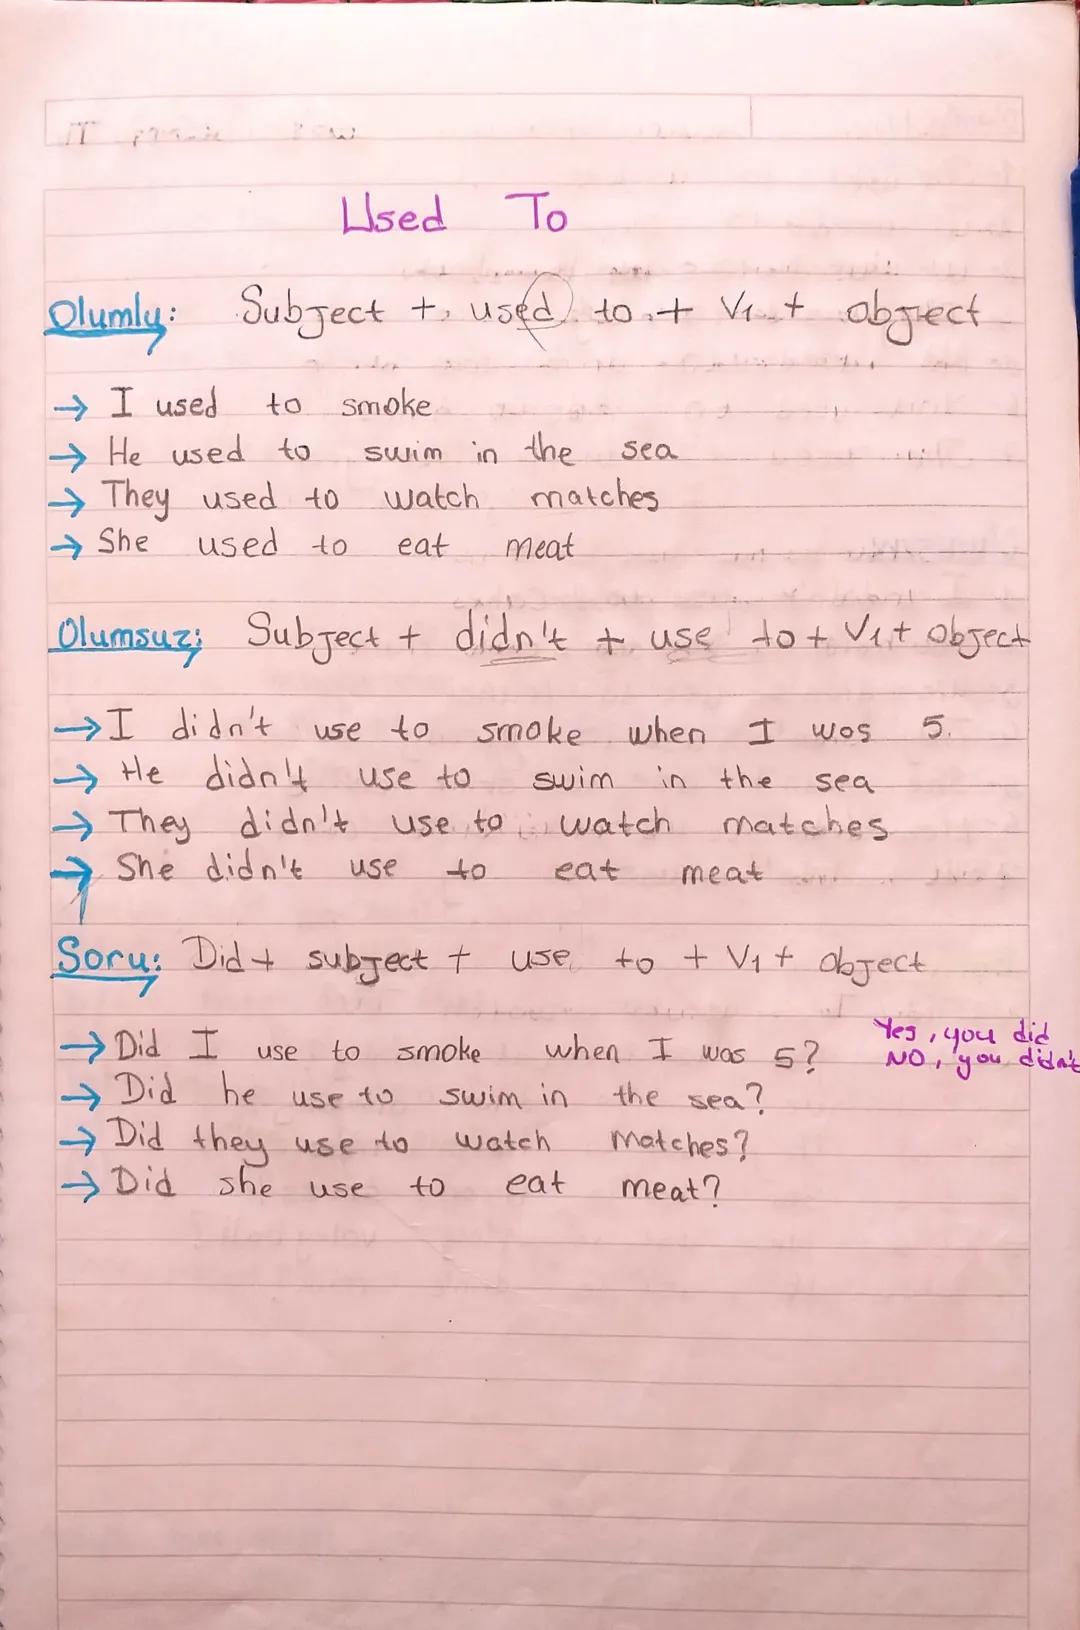 Used To
Olumly: Subject + used to + V1 + object
→ I used to smoke
→ He used to swim in the sea
→ They used to watch matches
→ She used to eat meat
Olumsuz: Subject + didn't + use to + V1 + Object
→ I didn't use to smoke when I was 5.
→ He didn't use to swim in the sea
→ They didn't use to watch matches
→ She didn't use to eat meat
Soru: Did + subject + use to + V1 + object
→ Did I use to smoke when I was 5? Yes, you did
NO, you didn't
→ Did he use to swim in the sea?
→ Did they use to watch matches?
→ Did she use to eat meat?